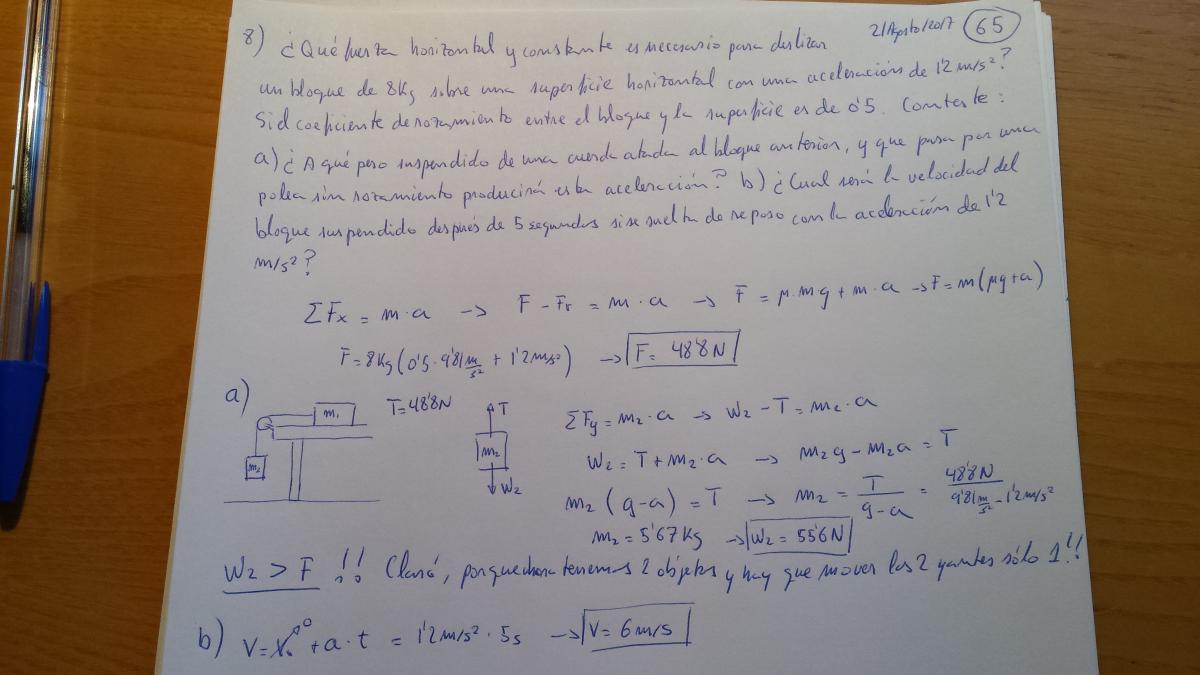 21Agosto/2017 65
8) ¿Qué fuerza horizontal y constante es necesario para deslizar
un bloque de 8Kg sobre una superficie horizontal con una aceleración de 1'2 m/s²?
Si el coeficiente de rozamiento entre el bloque y la superficie es de 0'5. Conteste:
a) ¿A qué peso suspendido de una cuerda atada al bloque anterior, y que pasa por una
polea sin rozamiento producirá esta aceleración? b) ¿Cual será la velocidad del
bloque suspendido después de 5 segundos si se suelta de reposo con la aceleración de 1'2
m/s²?
ΣFx = m·a → F - Fr = m·a → F = μ·mg + m·a → F = m(μg+a)
F = 8Kg(0'5·9'81 m/s² + 1'2m/s²) → F = 48'8N
a) m₁ T=48'8N T ΣFy = m₂·a → W₂ - T = m₂·a
m₂ m₂ W₂ = T + m₂·a → m₂g - m₂a = T
W₂ m₂ (g-a) = T → m₂ = T/g-a = 48'8N/9'81 m/s² - 1'2m/s²
m₂ = 5'67Kg → W₂ = 55'6N
W₂ > F !! Claro, porque ahora tenemos 2 objetos y hay que mover los 2 y antes sólo 1!!
b) V = V₀ 0 + a·t = 1'2m/s²·5s → V = 6m/s